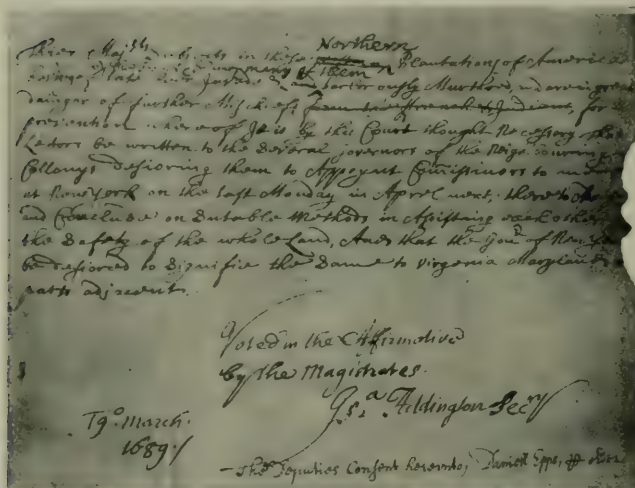 Northern
Their Majties in these Plantations of America
having of late been and barbarously Murthered, under in great
danger of further Mischiefs from the French & Indians, for the
prevention whereof It is by this Court thought Necessary that
Letters be written to the Several governors of the Neighbouring
Collonys desiering them to Appoynt Comissinors to
at New York on the last Monday in Aprell next, there to
and Conclude on Sutable Methods in Assisting each other
the Safety of the whole Land, And that the Gour of New York
be desiered to Signifie the Same to Virginia Maryland
parts adjacent.
Voted in the Affirmative
by the Magistrates.
Isa Addington Secry
19o March.
1689./
The Deputies Consent hereunto, Daniell Epps,